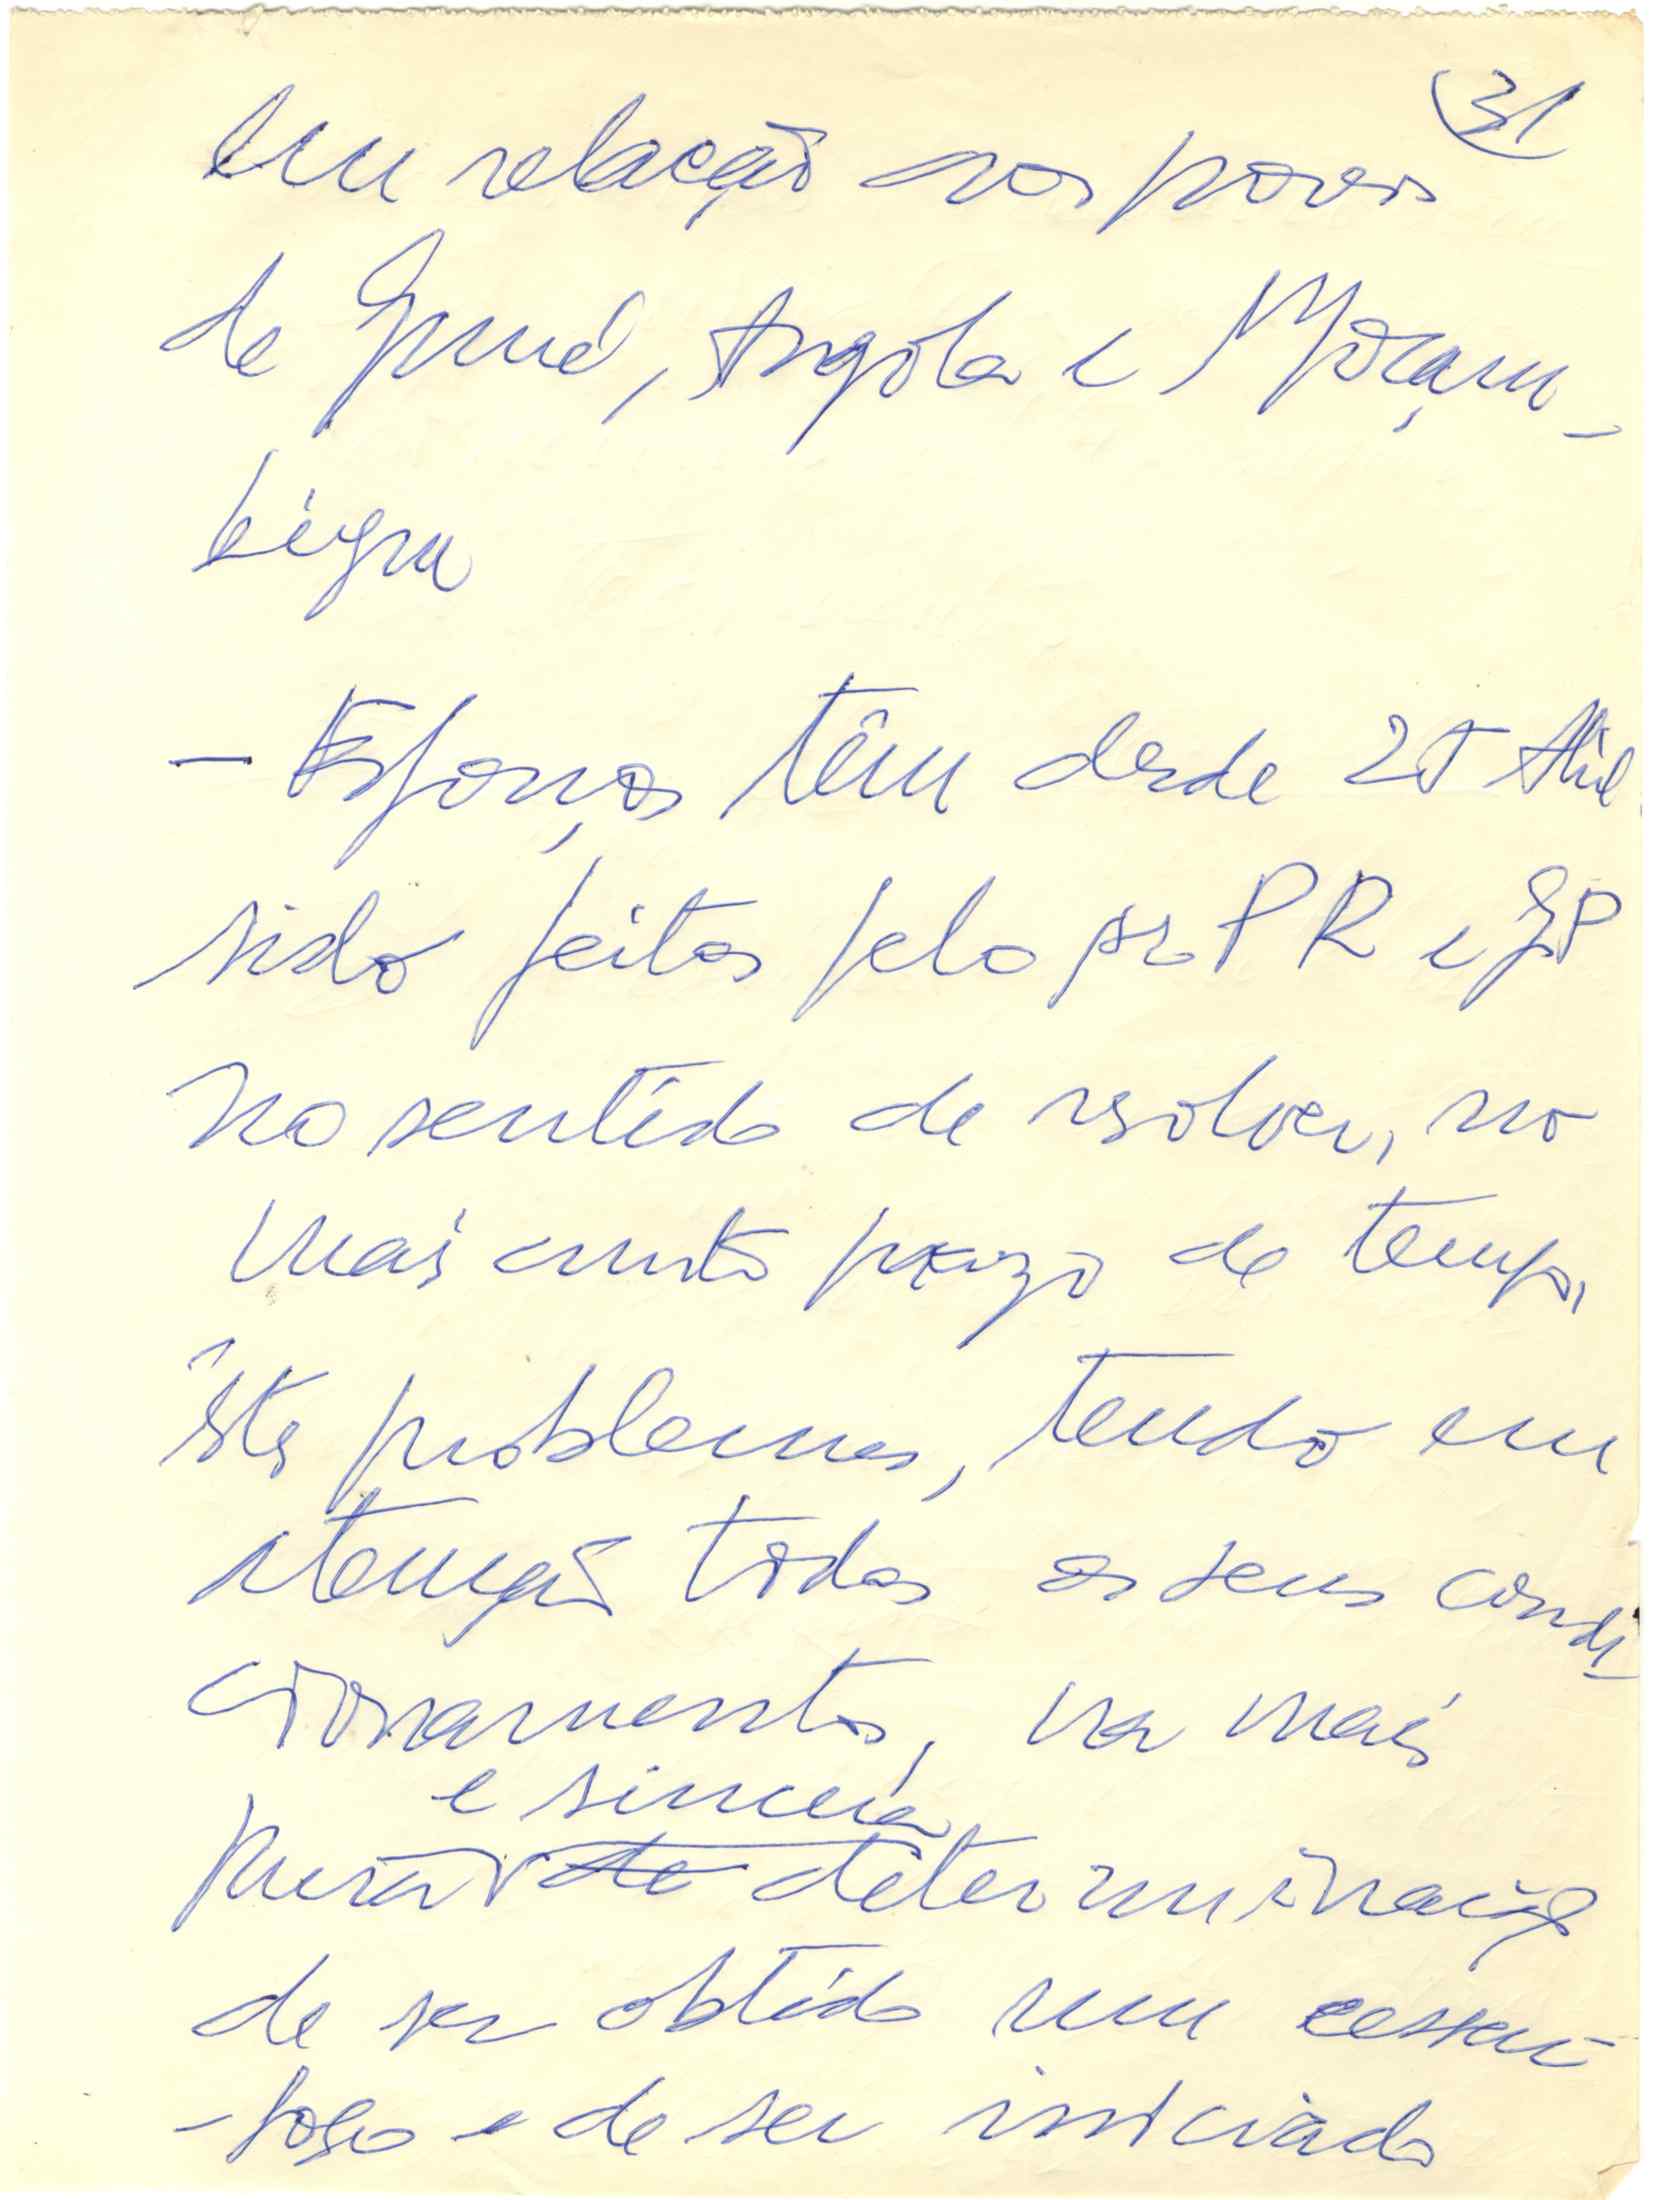 31
em relação aos povos
de Guiné, Angola e Moçam-
bique
- Esforços têm desde 25 Abril
sido feitos pelo sr PR e GP
no sentido de resolver, no
mais curto prazo de tempo,
êstes problemas, tendo em
atenção todos os seus condi
cionamentos, na mais
e sincera
pura de determinação
de ser obtido um cessar-
-fogo e de ser iniciado